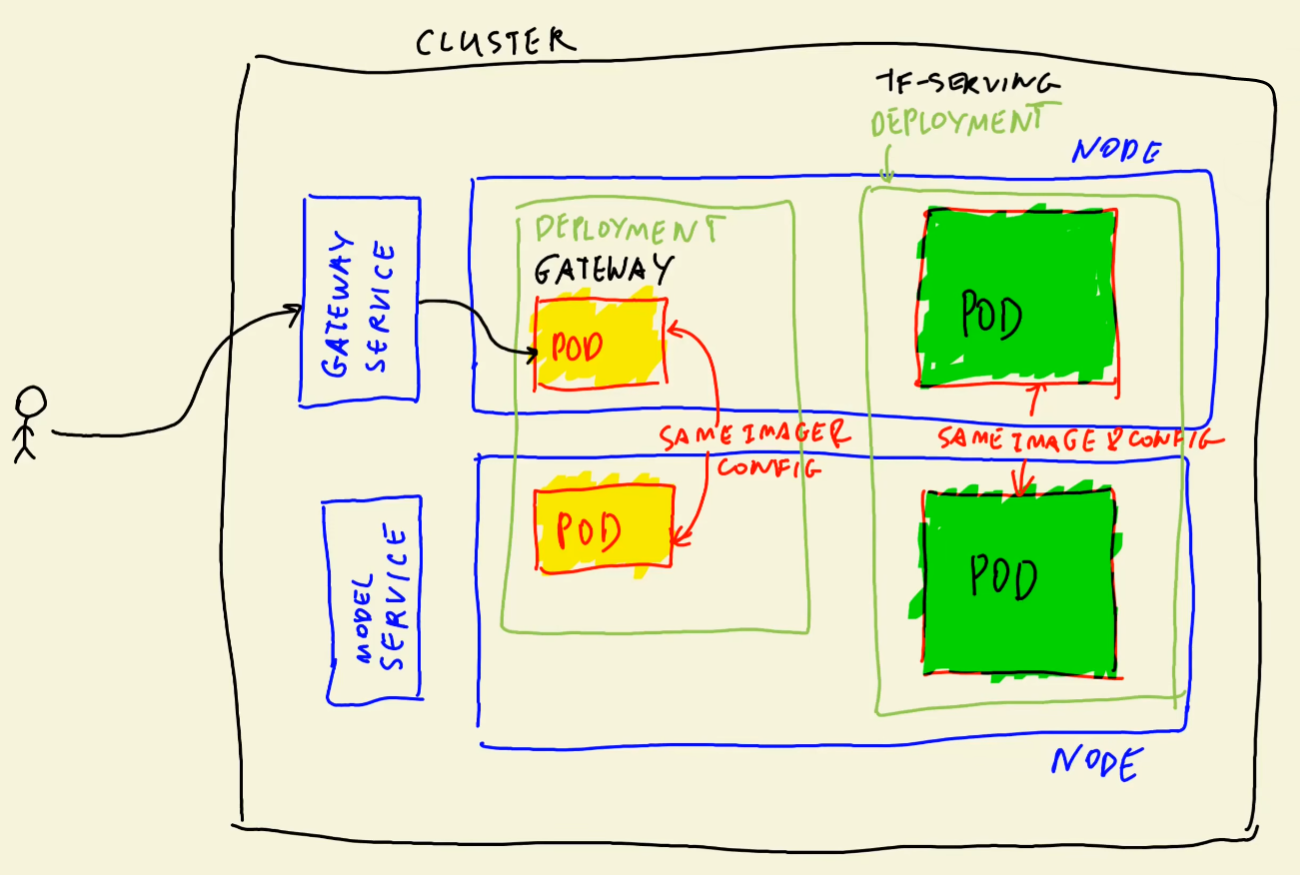 CLUSTER
TF-SERVING
DEPLOYMENT
NODE
GATEWAY
SERVICE
DEPLOYMENT
GATEWAY
POD
POD
SAME IMAGER
CONFIG
SAME IMAGE & CONFIG
POD
POD
MODEL
SERVICE
NODE